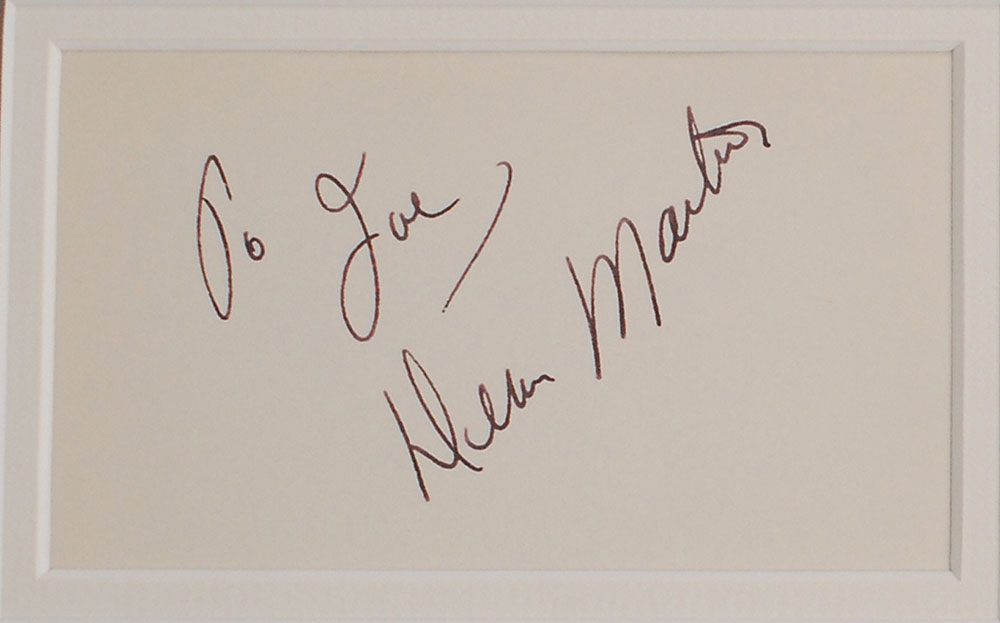 To Joe
Dean Martin